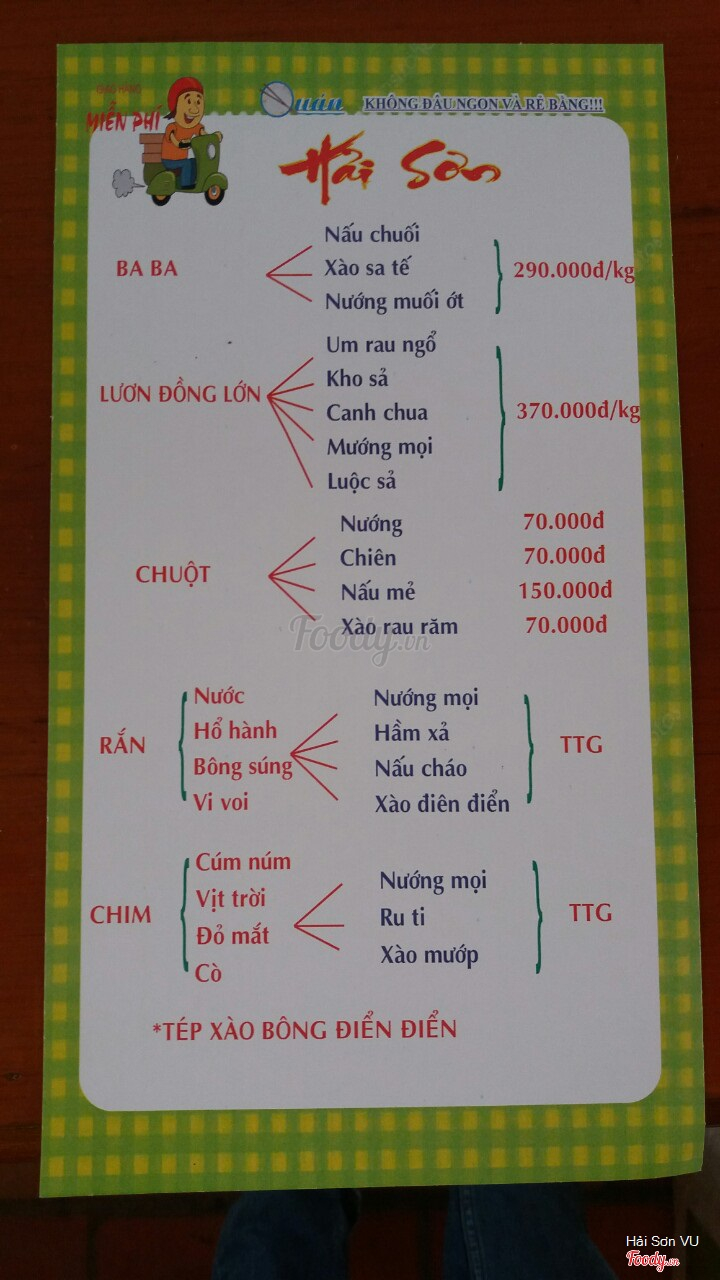 GIAO HÀNG
MIỄN PHÍ
Quán
KHÔNG ĐÂU NGON VÀ RẺ BẰNG!!!
Hải Sơn
BA BA
Nấu chuối
Xào sa tế
Nướng muối ớt
290.000đ/kg
LƯƠN ĐỒNG LỚN
Um rau ngổ
Kho sả
Canh chua
Mướng mọi
Luộc sả
370.000đ/kg
CHUỘT
Nướng 70.000đ
Chiên 70.000đ
Nấu mẻ 150.000đ
Xào rau răm 70.000đ
Foody.vn
RẮN
Nước
Hổ hành
Bông súng
Vi voi
Nướng mọi
Hầm xả
Nấu cháo
Xào điên điển
TTG
CHIM
Cúm núm
Vịt trời
Đỏ mắt
Cò
Nướng mọi
Ru ti
Xào mướp
TTG
*TÉP XÀO BÔNG ĐIỂN ĐIỂN
Hải Sơn VU
Foody.vn